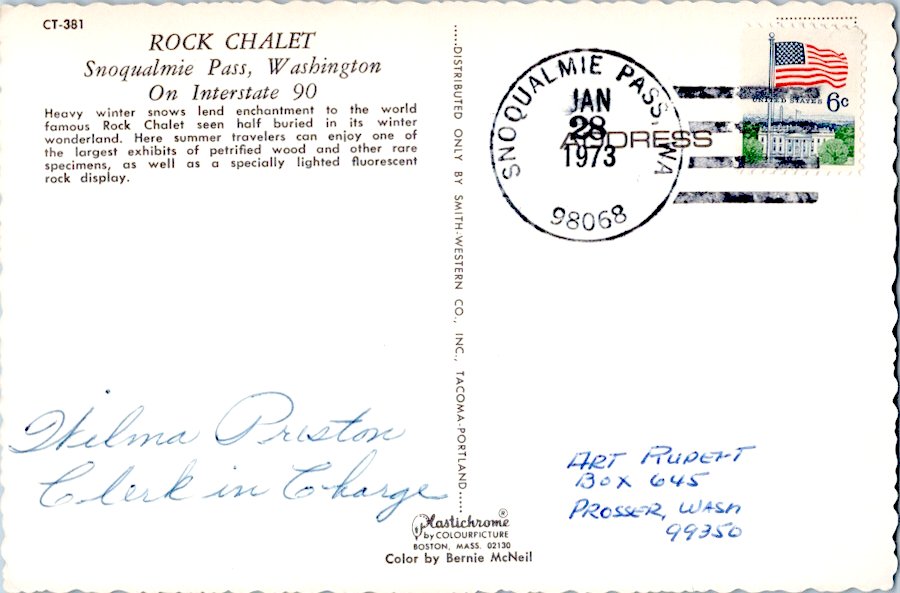 CT-381
ROCK CHALET
Snoqualmie Pass, Washington
On Interstate 90
Heavy winter snows lend enchantment to the world
famous Rock Chalet seen half buried in its winter
wonderland. Here summer travelers can enjoy one of
the largest exhibits of petrified wood and other rare
specimens, as well as a specially lighted fluorescent
rock display.
.....DISTRIBUTED ONLY BY SMITH-WESTERN CO., INC., TACOMA-PORTLAND.....
SNOQUALMIE PASS, WA
JAN
28
1973
98068
ADDRESS
UNITED STATES 6c
Wilma Priston
Clerk in Charge
ART RUPERT
BOX 645
PROSSER, WASH
99350
Plastichrome®
by COLOURPICTURE
BOSTON, MASS. 02130
Color by Bernie McNeil